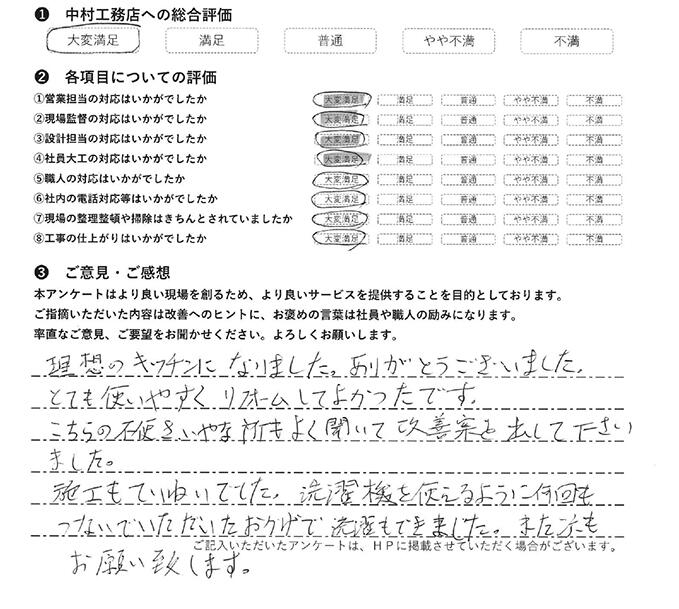 ❶ 中村工務店への総合評価
大変満足 満足 普通 やや不満 不満
❷ 各項目についての評価
①営業担当の対応はいかがでしたか 大変満足 満足 普通 やや不満 不満
②現場監督の対応はいかがでしたか 大変満足 満足 普通 やや不満 不満
③設計担当の対応はいかがでしたか 大変満足 満足 普通 やや不満 不満
④社員大工の対応はいかがでしたか 大変満足 満足 普通 やや不満 不満
⑤職人の対応はいかがでしたか 大変満足 満足 普通 やや不満 不満
⑥社内の電話対応等はいかがでしたか 大変満足 満足 普通 やや不満 不満
⑦現場の整理整頓や掃除はきちんとされていましたか 大変満足 満足 普通 やや不満 不満
⑧工事の仕上がりはいかがでしたか 大変満足 満足 普通 やや不満 不満
❸ ご意見・ご感想
本アンケートはより良い現場を創るため、より良いサービスを提供することを目的としております。
ご指摘いただいた内容は改善へのヒントに、お褒めの言葉は社員や職人の励みになります。
率直なご意見、ご要望をお聞かせください。よろしくお願いします。
理想のキッチンになりました。ありがとうございました。
とても使いやすくリフォームしてよかったです。
こちらの不便をいやな所もよく聞いて改善案を出して下さい
ました。
施工もていねいでした。洗濯機を使えるように何回も
つないでいただいたおかげで洗濯もできました。また次も
ご記入いただいたアンケートは、HPに掲載させていただく場合がございます。
お願い致します。